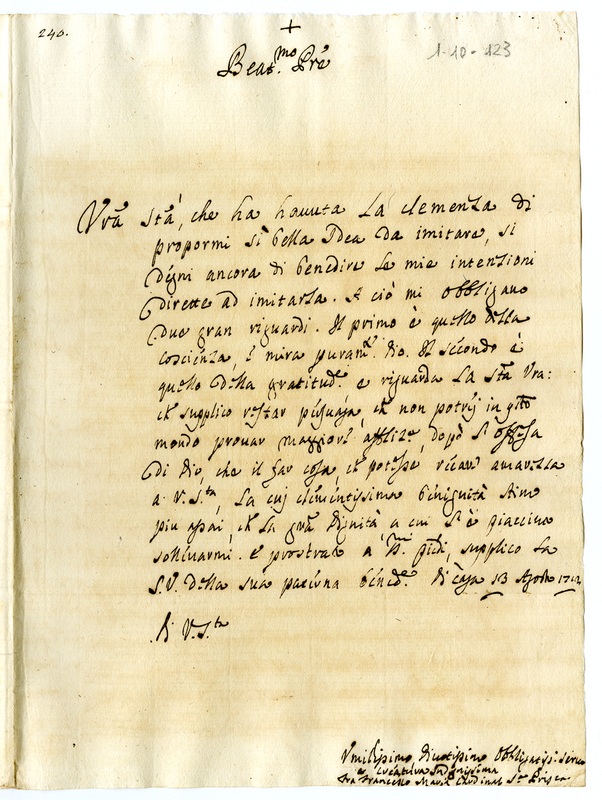 240.
+
1-10-123
Beat.mo Pre
Vra Stà, che ha hauuta la clemenza di
propormi sì bella Idea da imitare, si
degni ancora di benedire le mie intenzioni
dirette ad imitarla. A ciò mi obbligano
due gran riguardi. Il primo è quello della
coscienza, e mira puram.e Dio. Il secondo è
quello della gratitud.e e riguarda la Stà Vra:
che supplico restar persuasa, che non potrej in qsto
mondo prouar maggiore afflize, dopò l'offesa
di Dio, che il far cosa, che potesse recare amarezza
a V. S.ta, la cuj clementissima benignità stimo
più assai, che la gran dignità, a cui s'è piacciuto
solleuarmi. E prostrato a Smi piedi, supplico la
S.V. della sua paterna bened.e Di Casa 13 Agosto 1712
Di V. S.ta
Vmilissimo Diuotissimo Obbligatis. Seruo
e Creatura Indegnissima
Fra Francesco Maria Cardinal S.ta Prisca